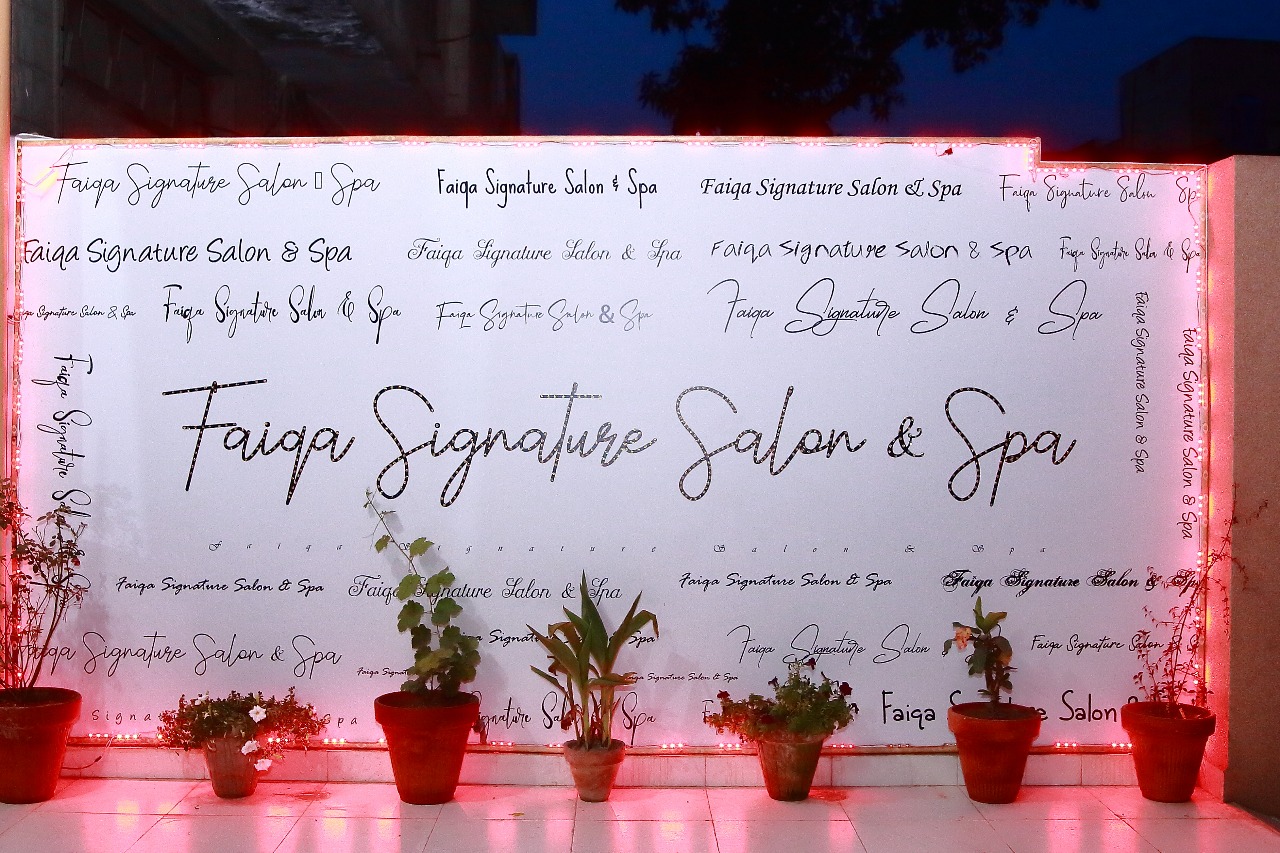 Faiqa Signature Salon ▯ Spa
Faiqa Signature Salon & Spa
Faiqa Signature Salon & Spa
Faiqa Signature Salon Sp
Faiqa Signature Salon & Spa
Faiqa Signature Salon & Spa
Faiqa Signature Salon & Spa
Faiqa Signature Salon & Spa
Signature Salon & Spa
Faiqa Signature Salon & Spa
Faiqa Signature Salon & Spa
Faiqa Signature Salon & Spa
Faiqa Signature Salon & Spa
Faiqa Signature Salon & Spa
Faiqa Signature Sal
Faiqa Signature Salon & Spa
Faiqa Signature Salon & Spa
Faiqa Signature Salon & Spa
Faiqa Signature Salon & Spa
Faiqa Signature Salon & Spa
Faiqa Signature Salon & Sp
Faiqa Signature Salon & Spa
Signature Salon
Faiqa Signature Salon
Faiqa Signat
Signature Salon & Spa
Signa
pa
Spa
Faiqa
Salon